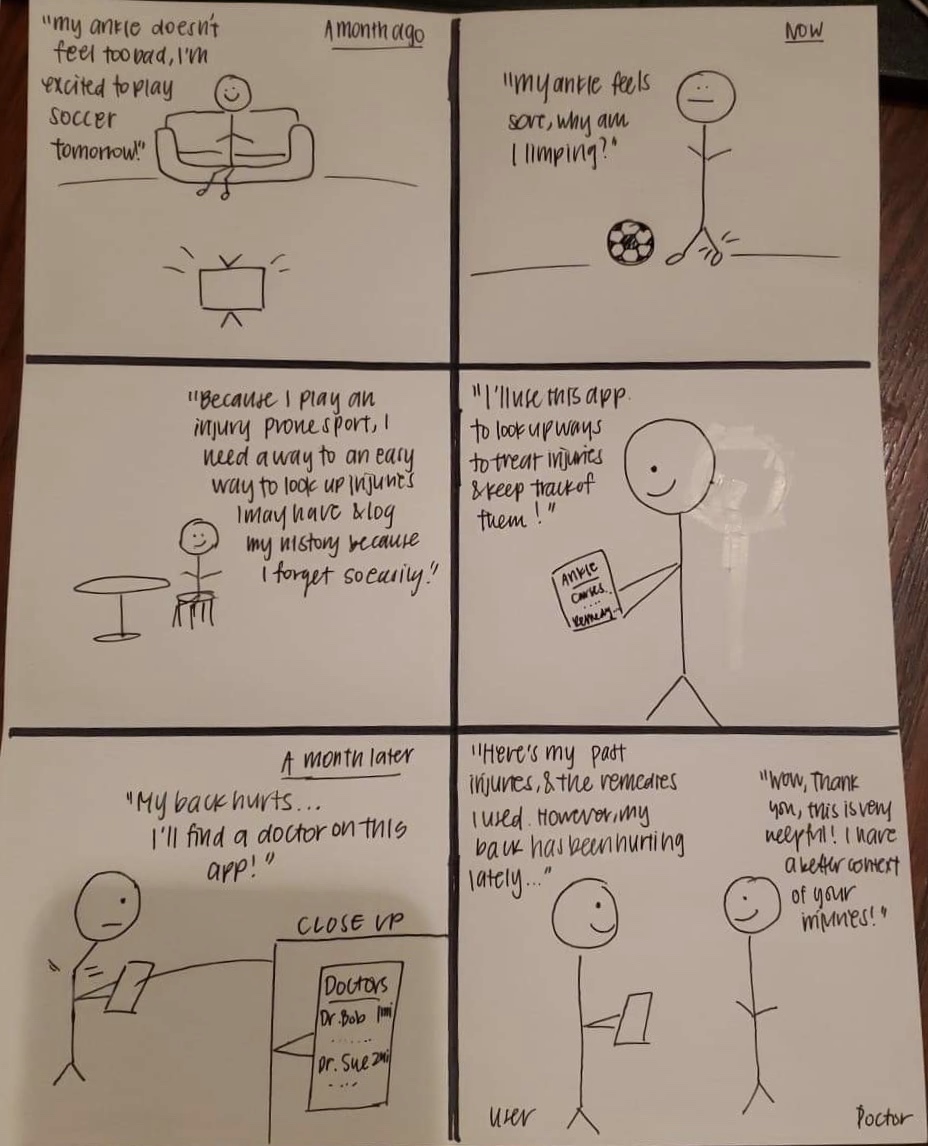 "my ankle doesn't
feel too bad, I'm
excited to play
soccer
tomorrow!"
A month ago
NOW
"my ankle feels
sore, why am
I limping?"
"Because I play an
injury prone sport, I
need a way to an easy
way to look up injuries
I may have & log
my history because
I forget so easily."
"I'll use this app
to look up ways
to treat injuries
& keep track of
them!"
Ankle
Causes..
....
Remedy..
A month later
"My back hurts...
I'll find a doctor on this
app!"
CLOSE UP
Doctors
Dr. Bob 1mi
......
Dr. Sue 2mi
....
"Here's my past
injuries, & the remedies
I used. However, my
back has been hurting
lately..."
"Wow, Thank
you, this is very
helpful! I have
a better context
of your
injuries!"
User
Doctor